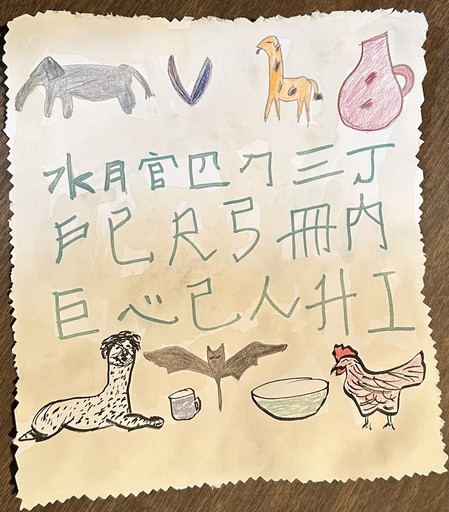 水月官四刀三丁
戶已尺弓冊内
巨心己人升工